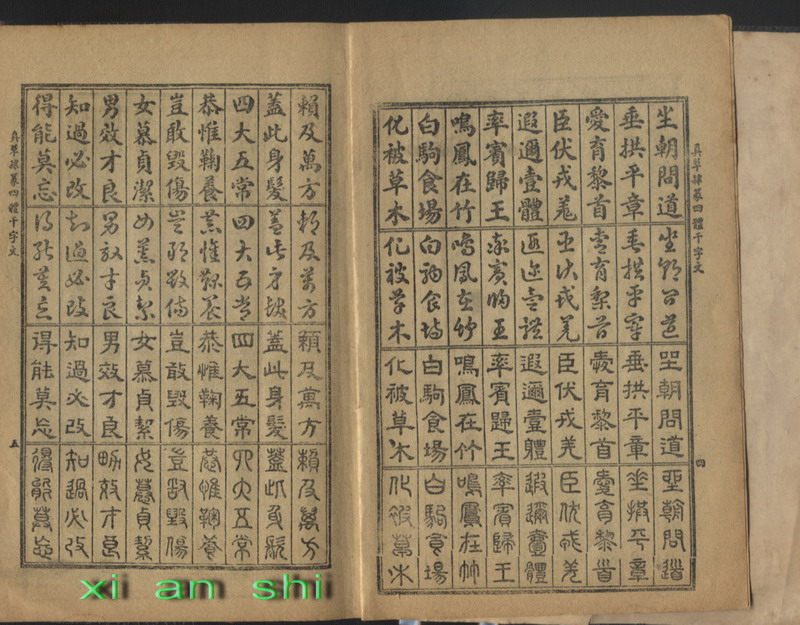 真草隸篆四體千字文
四
坐朝問道 坐朝問道 坐朝問道 坐朝問道
垂拱平章 垂拱平章 垂拱平章 垂拱平章
愛育黎首 愛育黎首 愛育黎首 愛育黎首
臣伏戎羌 臣伏戎羌 臣伏戎羌 臣伏戎羌
遐邇壹體 遐邇壹體 遐邇壹體 遐邇壹體
率賓歸王 率賓歸王 率賓歸王 率賓歸王
鳴鳳在竹 鳴鳳在竹 鳴鳳在竹 鳴鳳在竹
白駒食場 白駒食場 白駒食場 白駒食場
化被草木 化被草木 化被草木 化被草木
賴及萬方 賴及萬方 賴及萬方 賴及萬方
蓋此身髮 蓋此身髮 蓋此身髮 蓋此身髮
四大五常 四大五常 四大五常 四大五常
恭惟鞠養 恭惟鞠養 恭惟鞠養 恭惟鞠養
豈敢毀傷 豈敢毀傷 豈敢毀傷 豈敢毀傷
女慕貞潔 女慕貞絜 女慕貞絜 女慕貞絜
男效才良 男效才良 男效才良 男效才良
知過必改 知過必改 知過必改 知過必改
得能莫忘 得能莫忘 得能莫忘 得能莫忘
真草隸篆四體千字文
五
xii an shi